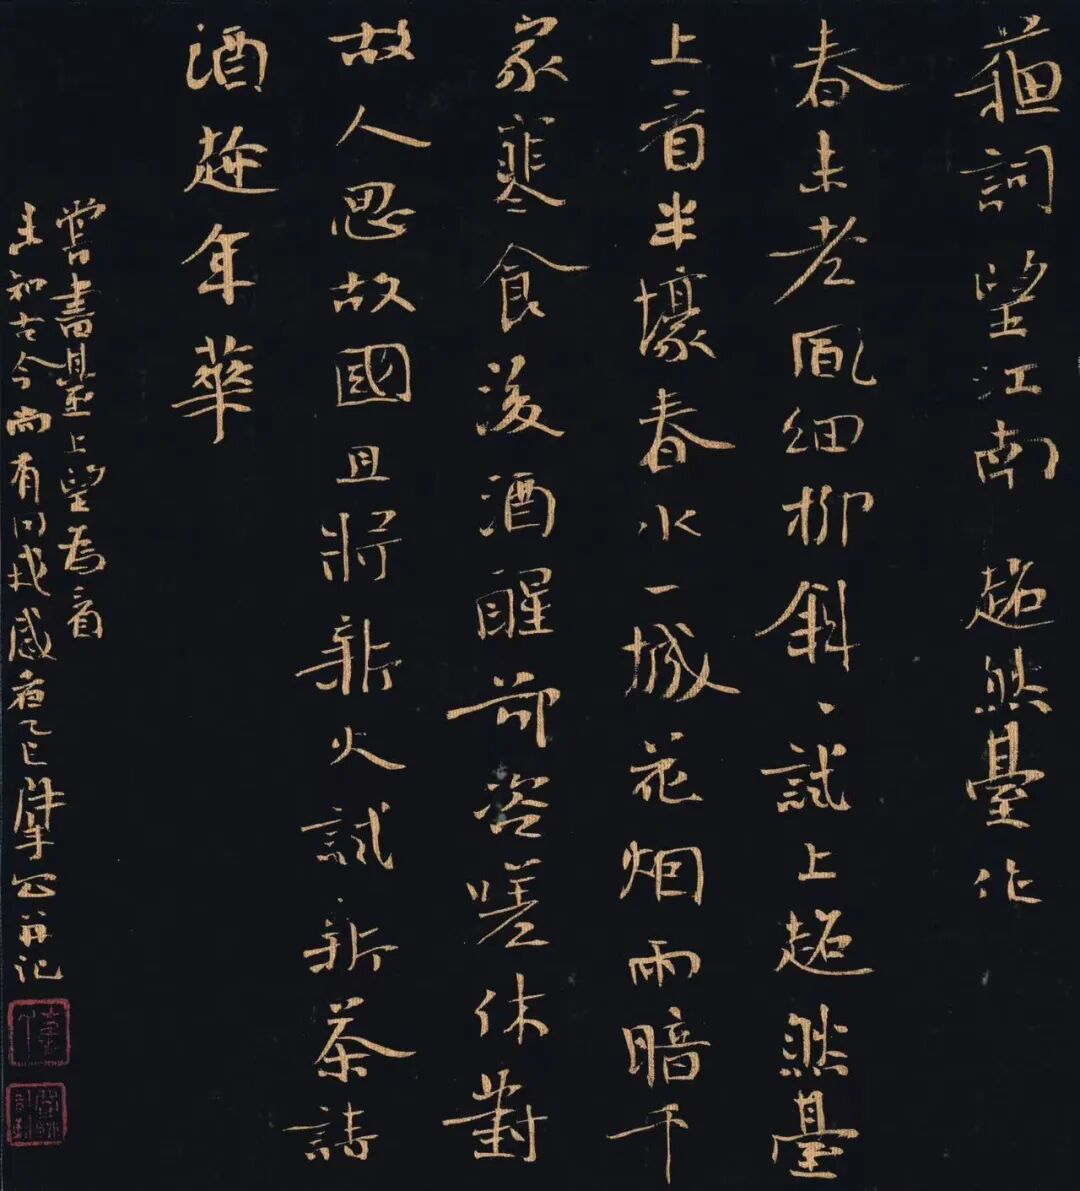 蘇詞望江南 超然臺作
春未老風細柳斜、試上超然臺
上看半壕春水一城花烟雨暗千
家寒食後酒醒卻咨嗟休對
故人思故國且將新火試新茶詩
酒趁年華
嘗書 上望為
知古今而有同我感者乙巳 記